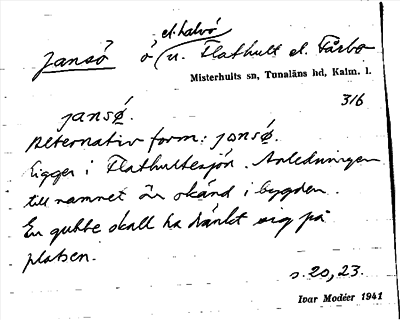 el. halvö
Jansö ö u. Flathult el. Fårbo
Misterhults sn, Tunaläns hd, Kalm. l.
316
jansø̜.
Alternativ form: jonsø̜.
Ligger i Flathultesjön. Anledningen
till namnet är okänd i bygden.
En gubbe skall ha dränkt sig på
platsen.
s. 20, 23.
Ivar Modéer 1941